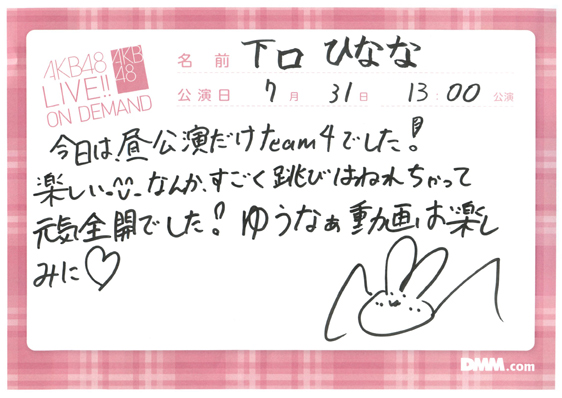 AKB48
LIVE!!
ON DEMAND
AKB
48
名前 下口ひなな
公演日 7月 31日 13:00 公演
今日は、昼公演だけteam4でした!
楽しい なんか、すごく跳びはねれちゃって
元気全開でした! ゆうなぁ動画お楽し
みに♡
DMM.com